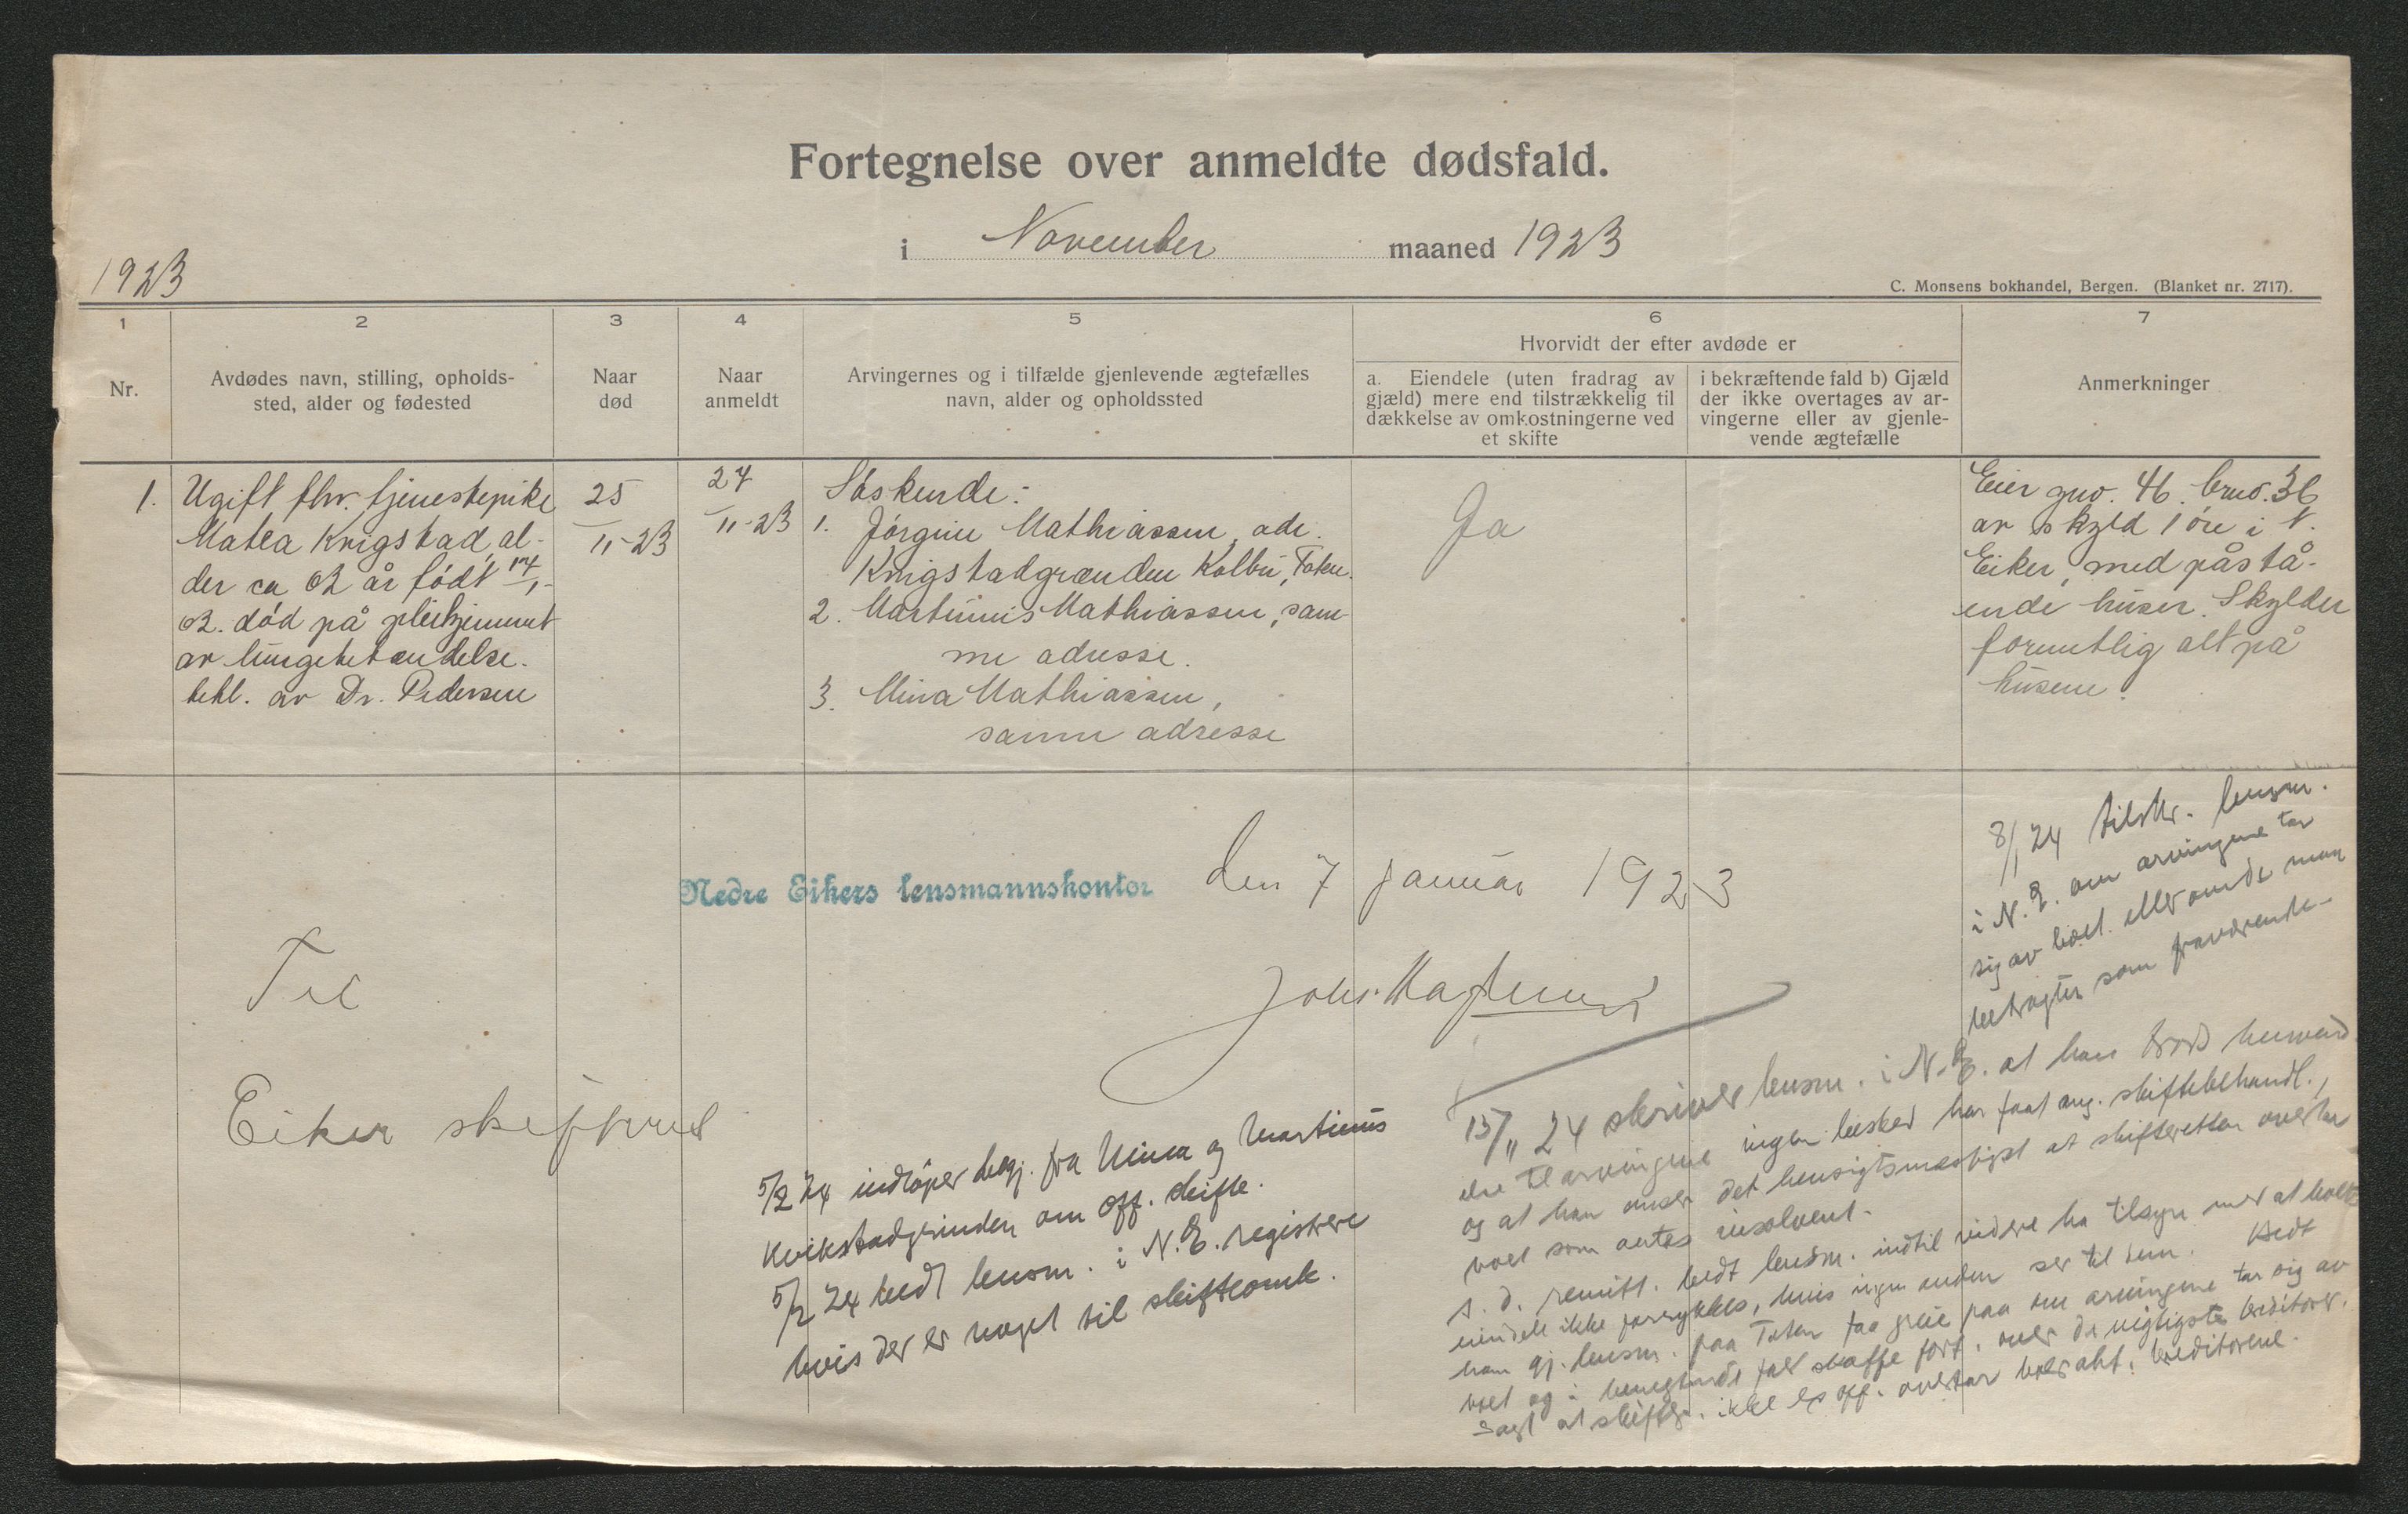 Fortegnelse over anmeldte dødsfald.
i November maaned 1923
1923
C. Monsens bokhandel, Bergen. (Blanket nr. 2717).
1
2
3
4
5
6
7
Nr.
Avdødes navn, stilling, opholds-
sted, alder og fødested
Naar
død
Naar
anmeldt
Arvingernes og i tilfælde gjenlevende ægtefælles
navn, alder og opholdssted
Hvorvidt der efter avdøde er
a. Eiendele (uten fradrag av
gjæld) mere end tilstrækkelig til
dækkelse av omkostningerne ved
et skifte
i bekræftende fald b) Gjæld
der ikke overtages av ar-
vingerne eller av gjenle-
vende ægtefælle
Anmerkninger
1.
Ugift fhv. tjenestepike
Matea Krigstad, al-
der ca 62 år født
død på pleihjemmet
av lungebetændelse.
behl. av Dr. Pedersen
25
11-23
24
11-23
Søskende:
1. Jørgine Mathiassen, adr.
Krigstadgrænden Kolbu, Toten.
2. Martinius Mathiassen, sam-
me adresse.
3. Mina Mathiassen,
samme adresse
Ja
Eier gno. 46. bruo. 36
av skyld 1 øre i N.
Eiker, med påstå-
ende huser. Skylder
formentlig alt på
husene.
Nedre Eikers lensmannskontor den 7 januar 1923
Til
Eiker skifteret
8/1 24 tilskr. lensm.
i N. E. om arvingene tar
sig av boet eller om de maa
betragtes som fraværende-
15/11 24 skriver lensm. i N.E. at han trods henvend
else til arvingene ingen besked har faat ang. skiftebehandl.,
og at han anser det hensigtsmæssigst at skifteretten overtar
boet som antas insolvent.
s. d. remitt. bedt lensm. indtil videre ha tilsyn med at boets
eiendele ikke forrykkes, hvis ingen anden ser til dem. Bedt
han gj. lensm. paa Toten faa greie paa om arvingene tar sig av
boet og i benegtende fald skaffe fort. over de vigtigste kreditorer.
Sagt at skifter. ikke ex off. overtar boer
kreditorene.
5/2 24 indløper begj. fra Mina og Martinius
Kvikstadgrinden om off. skifte.
5/2 24 bedt lensm. i N.E. registrere
hvis der er noget til skifteomk.